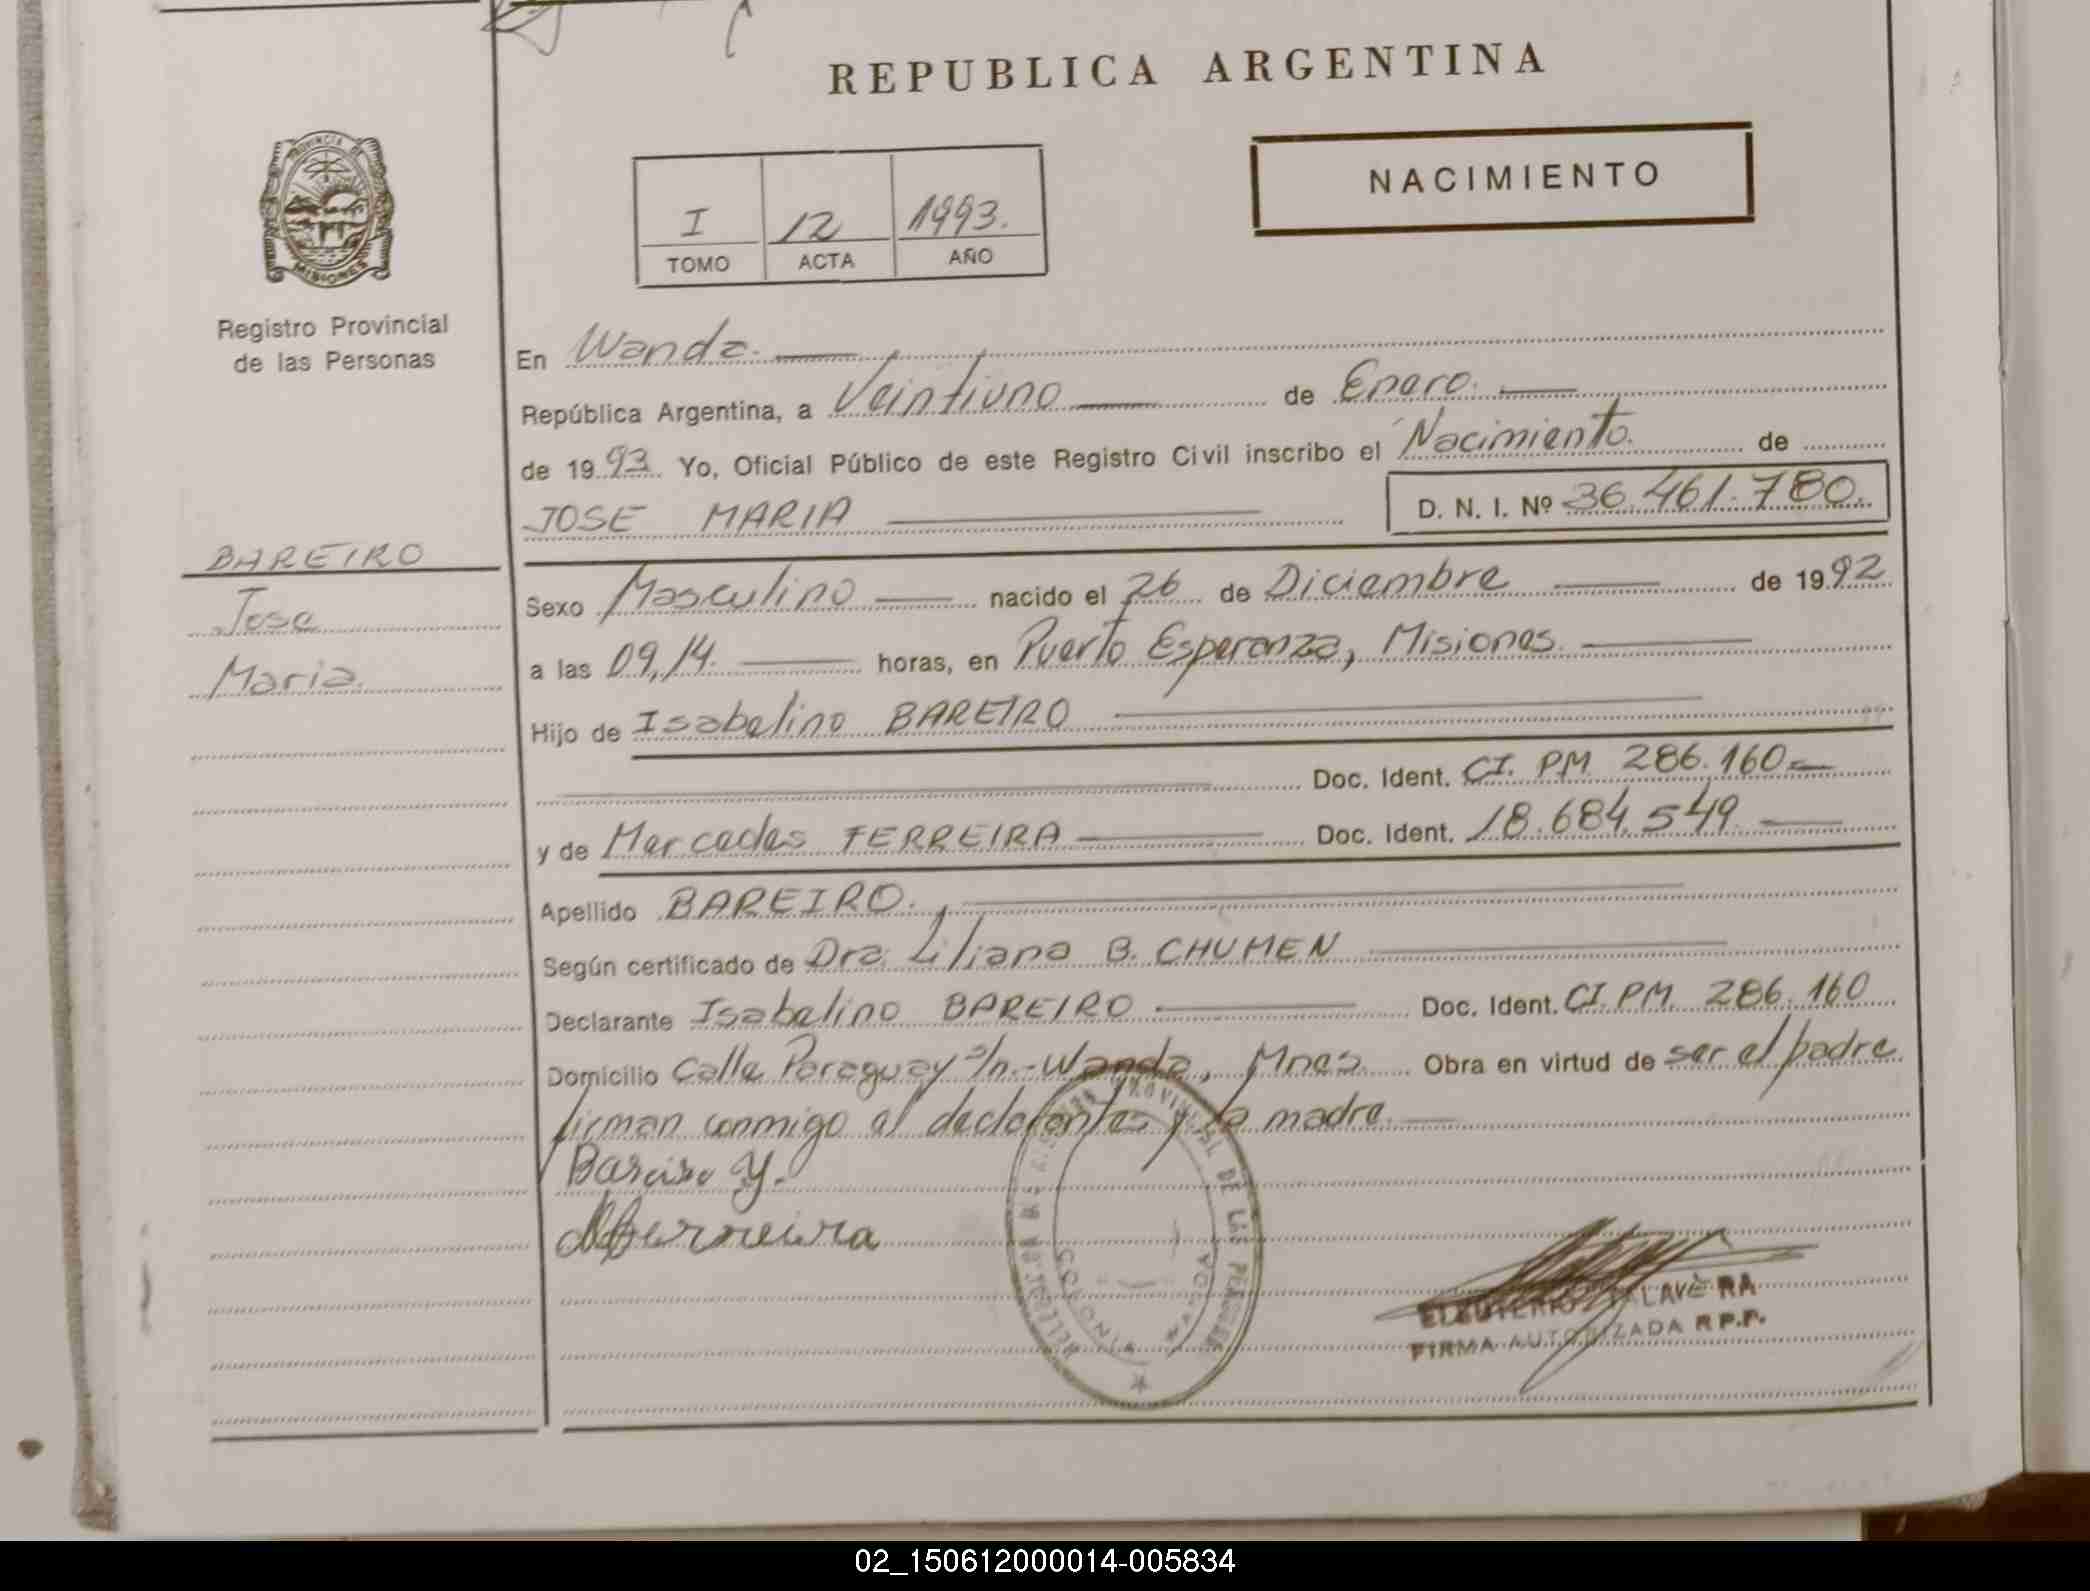 REPUBLICA ARGENTINA
NACIMIENTO
PROVINCIA DE
MISIONES
I 12 1993.
TOMO ACTA AÑO
Registro Provincial
de las Personas
BAREIRO
Jose
Maria.
En Wanda.
República Argentina, a Veintiuno de Enero.
de 1993 Yo, Oficial Público de este Registro Civil inscribo el Nacimiento. de
JOSE MARIA D. N. I. Nº 36.461.780.
Sexo Masculino nacido el 26 de Diciembre de 1992
a las 09,14. horas, en Puerto Esperanza, Misiones.
Hijo de Isabelino BAREIRO
Doc. Ident. CI. PM 286.160
y de Mercedes FERREIRA Doc. Ident. 18.684.549
Apellido BAREIRO.
Según certificado de Dra. Liliana B. CHUMEN
Declarante Isabelino BAREIRO Doc. Ident. CI. PM. 286.160
Domicilio Calle Paraguay s/n.-Wanda, Mnes. Obra en virtud de ser el padre
firman conmigo el declarante y la madre.
Bareiro Y.
MFerreira
PROVINCIAL DE LAS PERSONAS
COLONIA WANDA
ELEUTERIO TALAVERA
FIRMA AUTORIZADA R.P.P.
02_150612000014-005834